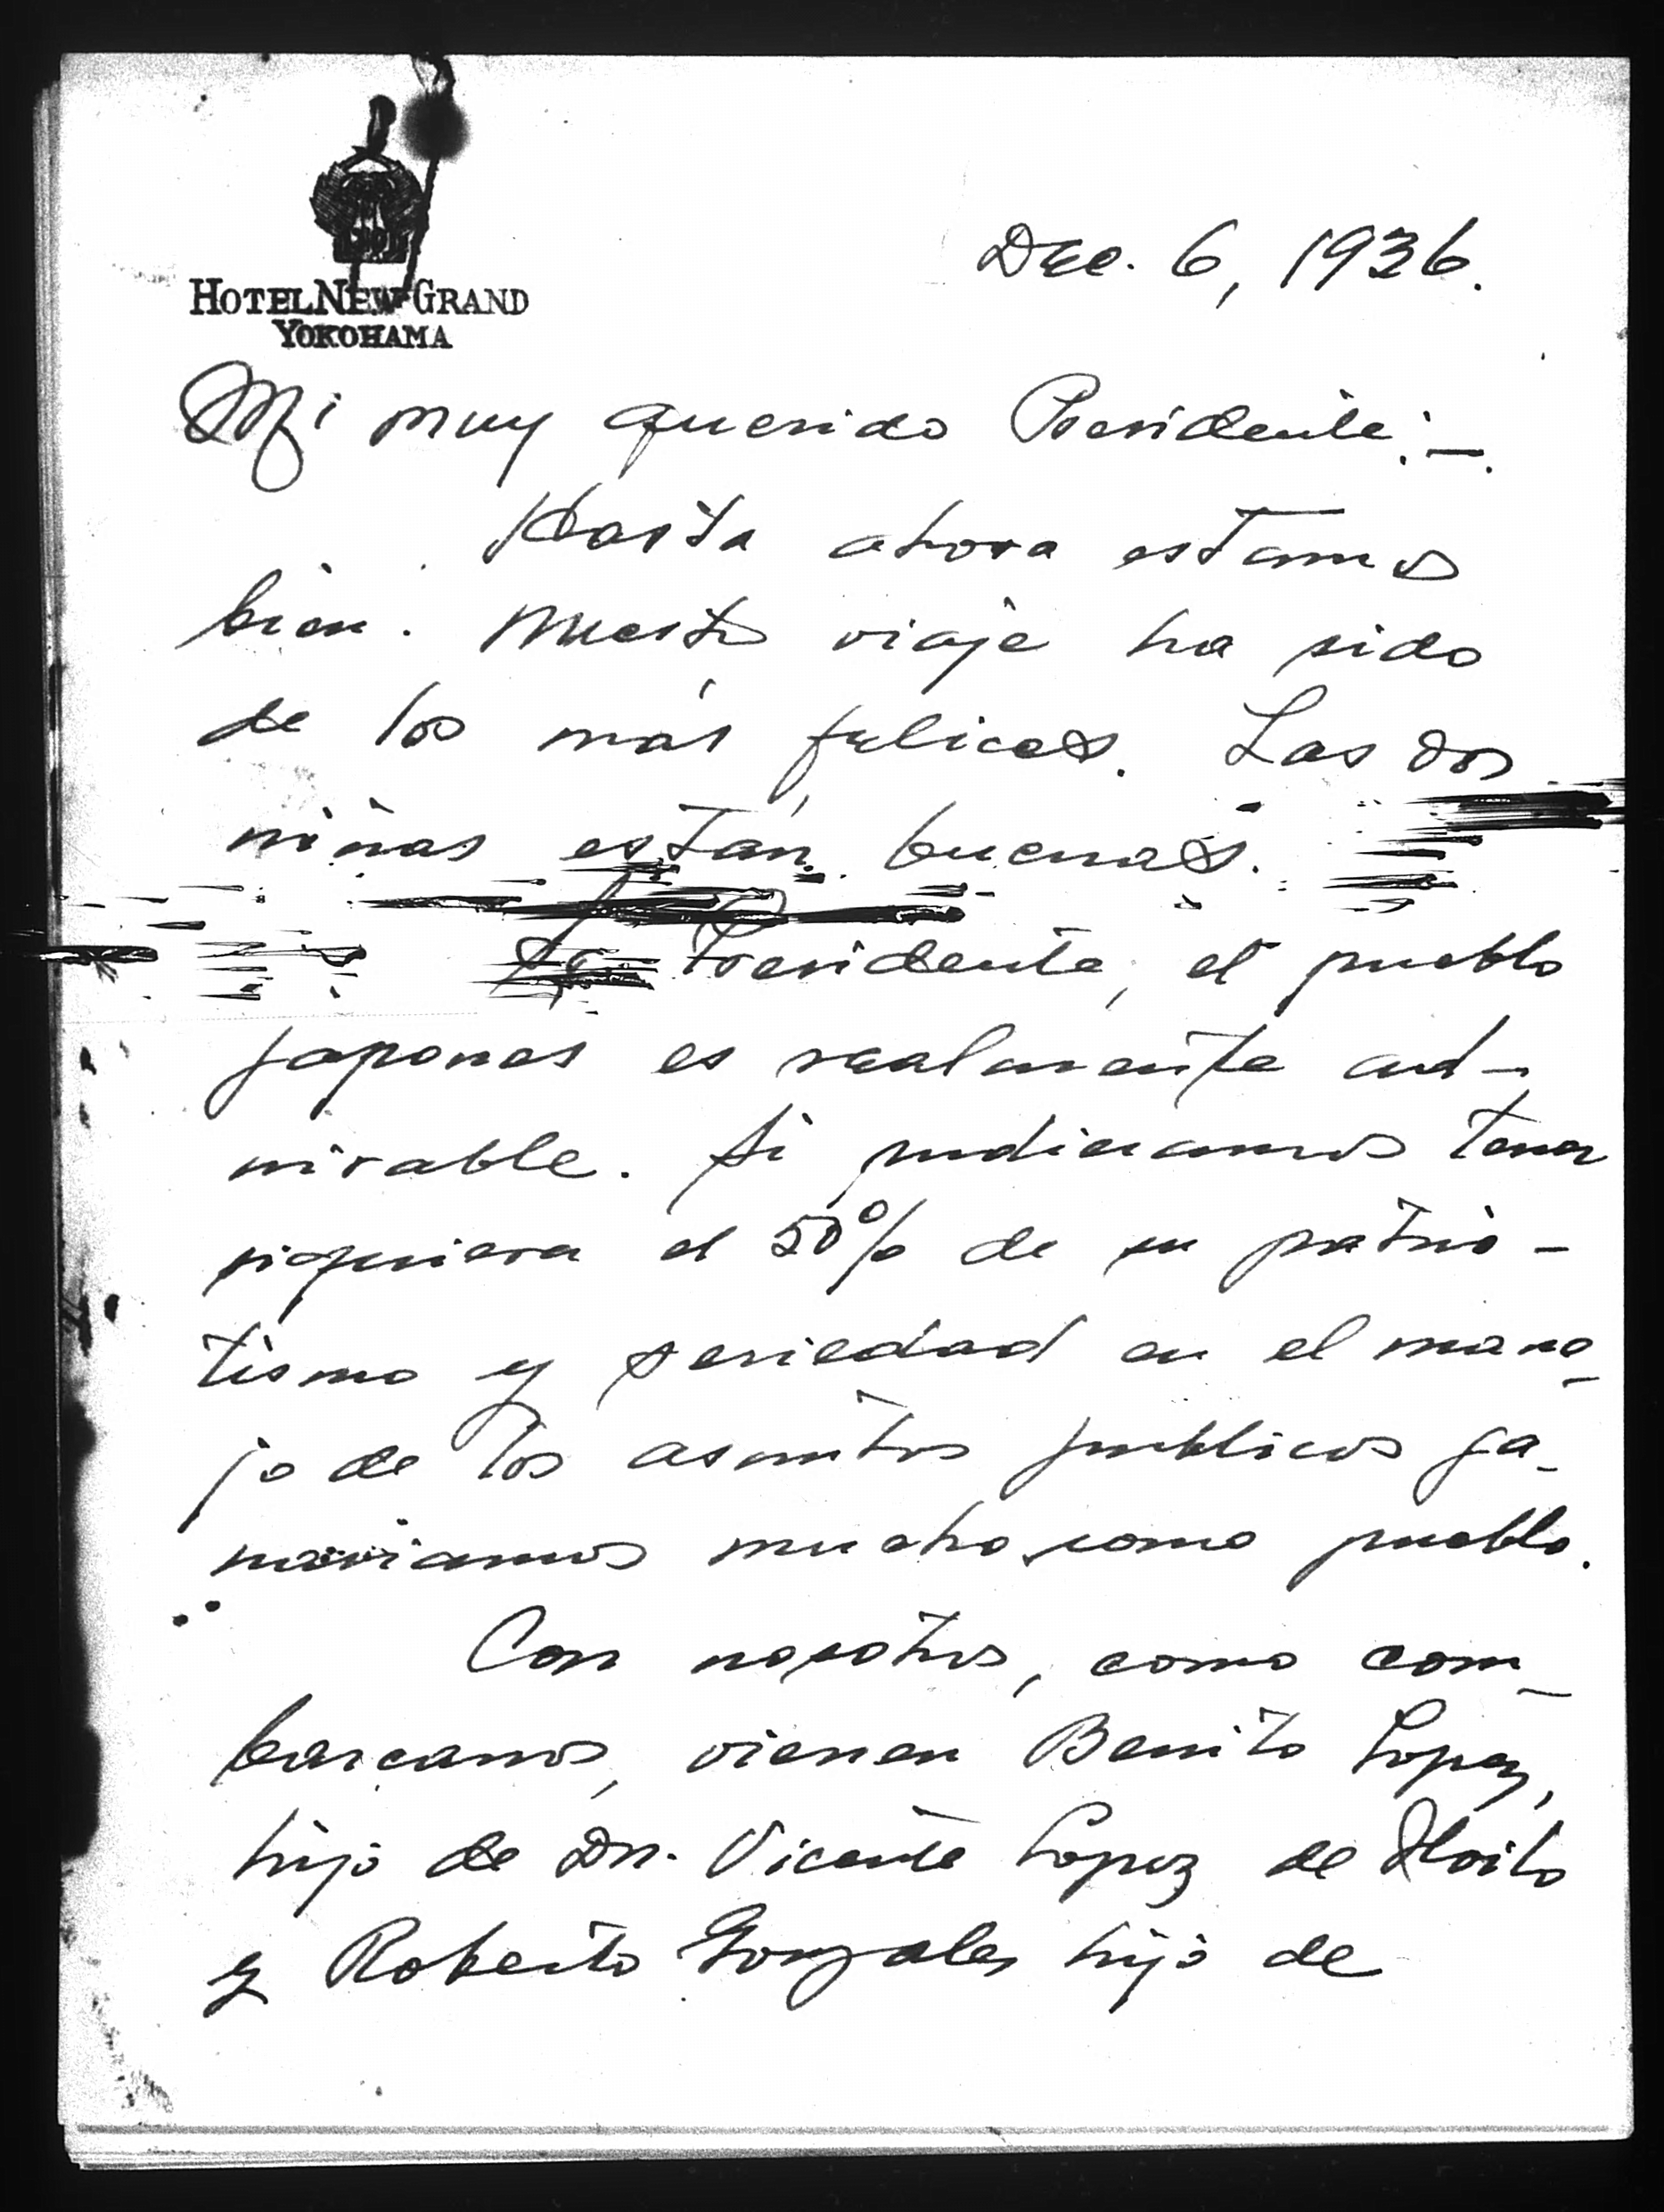 HOTEL NEW GRAND
YOKOHAMA
Dec. 6, 1936.
Mi muy querido Presidente:—
Hasta ahora estamos
bien. Nuestro viaje ha sido
de los más felices. Las dos
niñas están buenas.
Sr Presidente, el pueblo
japones es realmente ad-
mirable. Si pudieramos tener
siquiera el 50% de su patrio-
tismo y seriedad en el mane-
jo de los asuntos publicos ga-
nariamos mucho como pueblo.
Con nosotros, como com-
barcanos, vienen Benito Lopez,
hijo de Dn. Vicente Lopez de Iloilo
y Roberto Gonzales hijo de